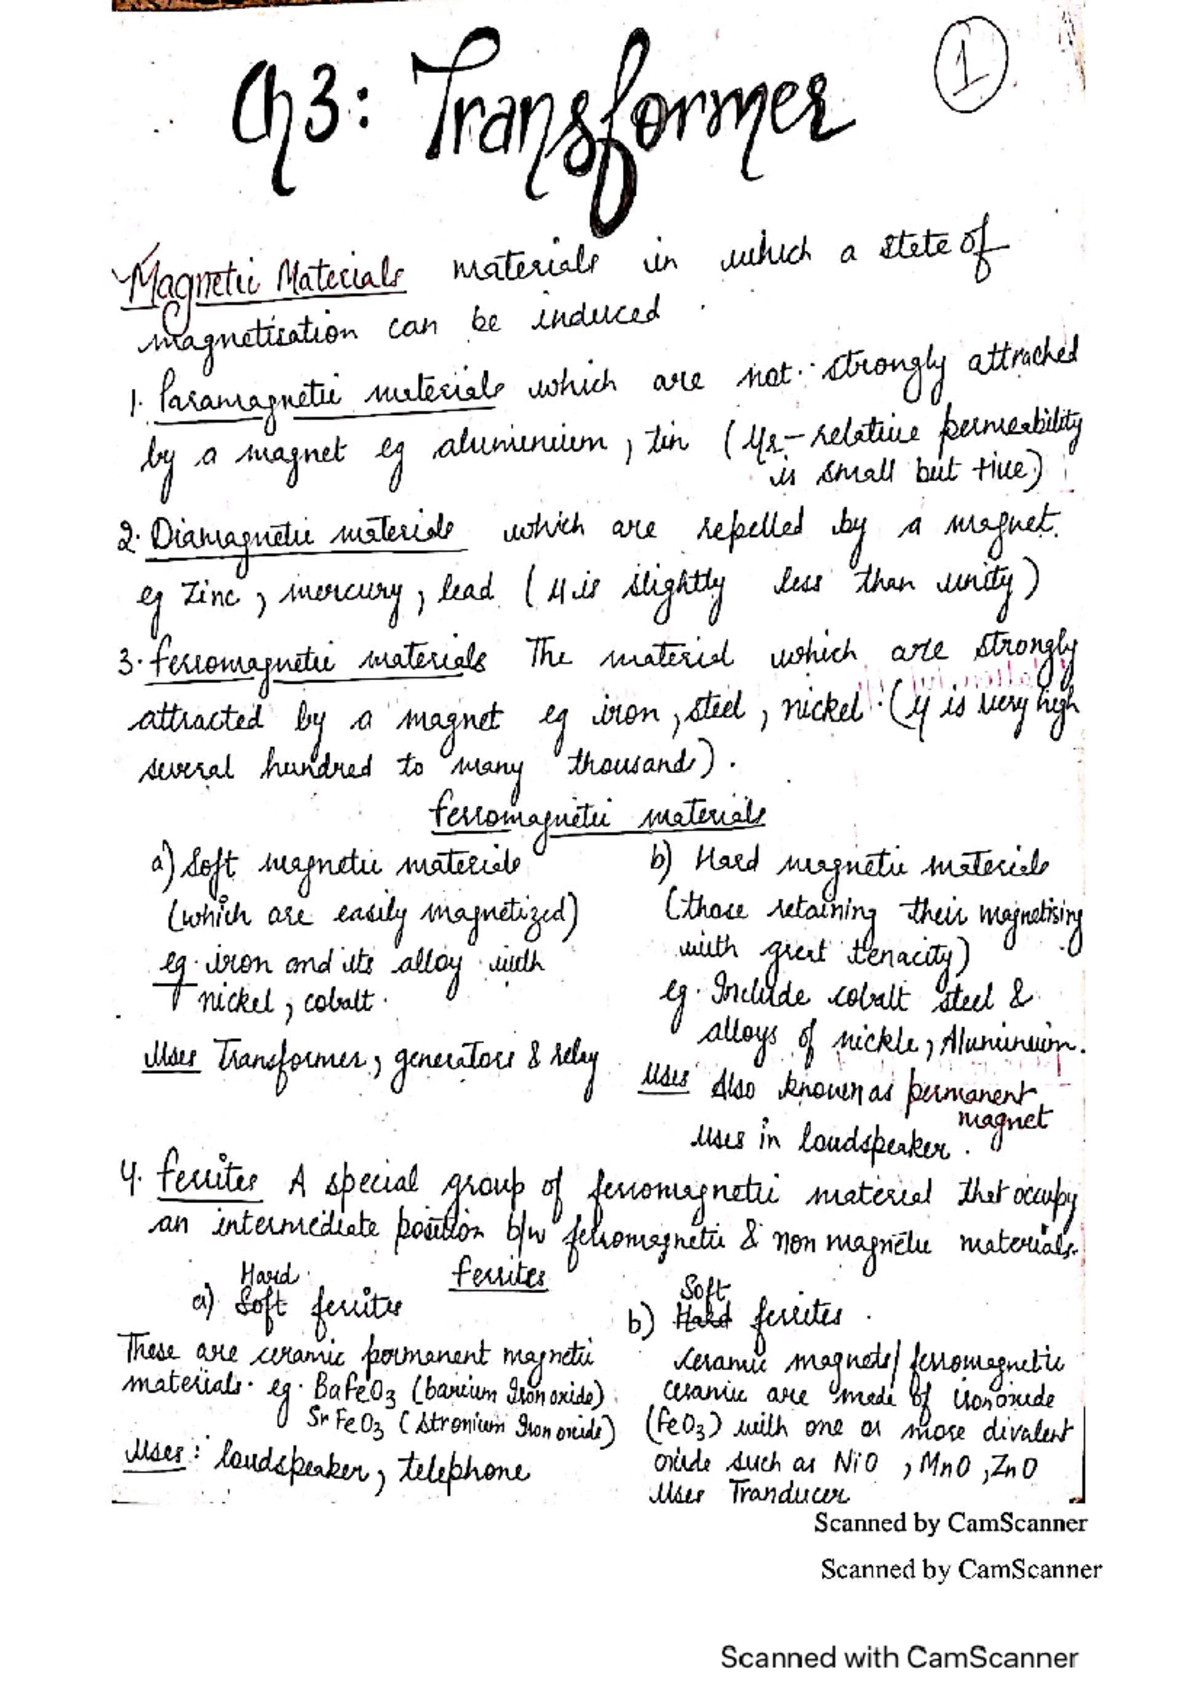 Ch 3: Transformer
1
Magnetic Materials materials in which a state of
magnetisation can be induced
1. Paramagnetic materials which are not strongly attracted
by a magnet eg aluminium, tin (μr - relative permeability
is small but +ive)
2. Diamagnetic materials which are repelled by a magnet.
eg Zinc, mercury, lead (μ is slightly less than unity)
3. ferromagnetic materials The material which are strongly
attracted by a magnet eg iron, steel, nickel. (μ is very high
several hundred to many thousand).
ferromagnetic materials
a) Soft magnetic materials
(which are easily magnetized)
eg. iron and its alloy with
nickel, cobalt.
Uses Transformer, generators & relay
b) Hard magnetic materials
(those retaining their magnetising
with great tenacity)
eg. Include cobalt steel &
alloys of nickle, Aluminium.
Uses Also known as permanent
magnet
Uses in loudspeaker.
4. ferrites A special group of ferromagnetic material that occupy
an intermediate position b/w ferromagnetic & non magnetic materials.
ferrites
Hard
a) Soft ferrites
These are ceramic permanent magnetic
materials. eg. BaFeO3 (barium Iron oxide)
SrFeO3 (stronium Iron oxide)
Uses: loudspeaker, telephone
Soft
b) Hard ferrites.
Ceramic magnets/ ferromagnetic
ceramic are made of iron oxide
(FeO3) with one or more divalent
oxide such as NiO, MnO, ZnO
Uses Tranducer
Scanned by CamScanner
Scanned by CamScanner
Scanned with CamScanner